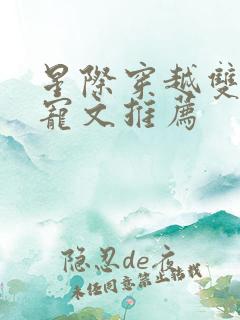 星際穿越雙
寵文推薦
隐忍de夜
未经同意禁止转载